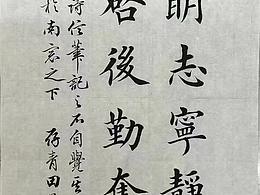 明志寧靜
啓後勤奮
詩信筆記之不自覺
於南窓之下 存青田